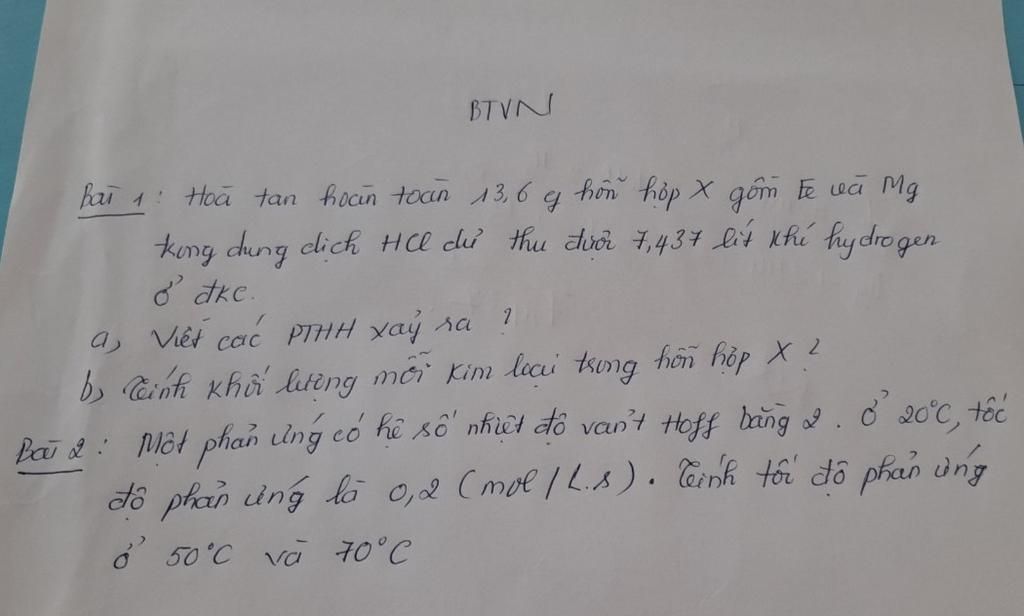 BTVN
Bài 1: Hoà tan hoàn toàn 13,6 g hỗn hợp X gồm Fe và Mg
trong dung dịch HCl dư thu được 7,437 lít khí hydrogen
ở đkc.
a, Viết các PTHH xảy ra ?
b, Tính khối lượng mỗi kim loại trong hỗn hợp X ?
Bài 2: Một phản ứng có hệ số nhiệt độ van't Hoff bằng 2. Ở 20°C, tốc
độ phản ứng là 0,2 (mol/L.s). Tính tốc độ phản ứng
ở 50°C và 70°C